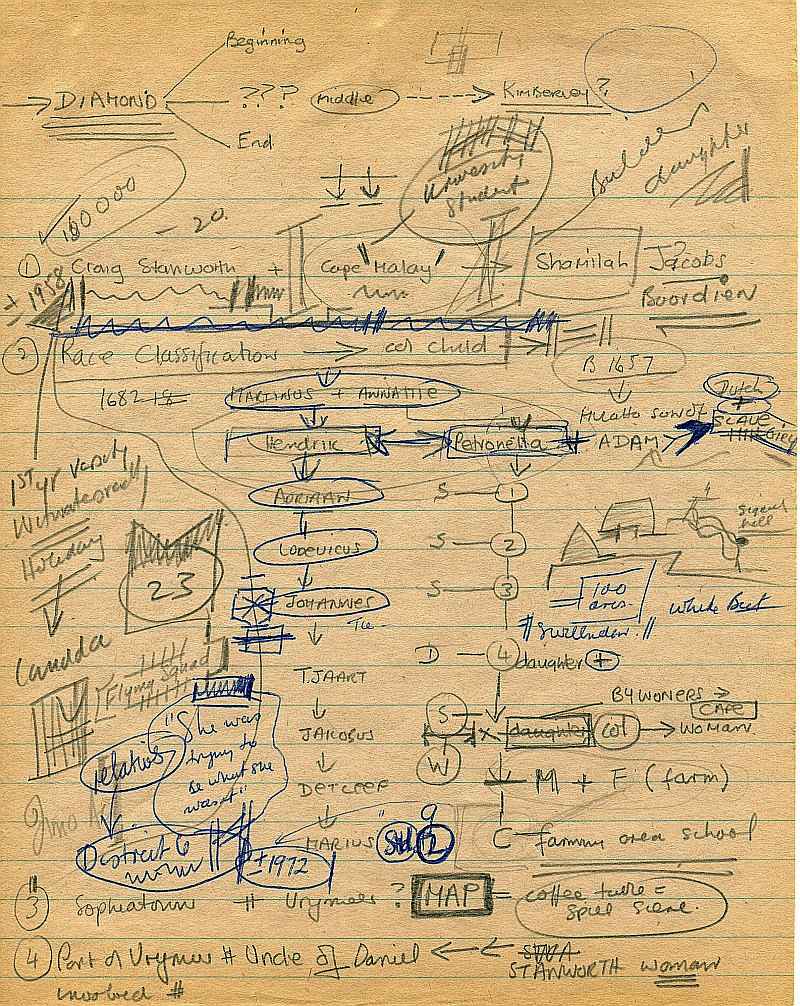 Beginning
→ DIAMOND ??? Middle → KIMBERLEY?
End
University Student
Builders daughter
100000
- 20.
① Craig Stanworth + Cape "Malay" → Shamilah Jacobs
± 1958
Boordien
② Race Classification → col child →
B 1657
1682
MARTINUS + ANNATJIE
Mulatto son of
Dutch
+
SLAVE
Hendrik Petronella ADAM
1st yr varsity
Witwatersrand
Holiday
ADRIAAN S 1
LODEVICUS S 2
signal hill
23
JOHANNES S 3
100 acres.
White Beet
# Swellendam #
Candda
D 4 daughter +
TJAART
Flying Squad
BYWONERS →
CAPE
"She was trying to be what she wasnt"
S
JAKOBUS x daughter col → WOMAN
relatives
W
DETLEEF M + F (farm)
District 6
± 1972
MARIUS Std 2
C farming area school
③ Sophiatown # Vrymeer ? MAP = coffee table = spill scene.
④ Part of Vrymeer # Uncle of Daniel ← ← SWA
involved #
STANWORTH woman